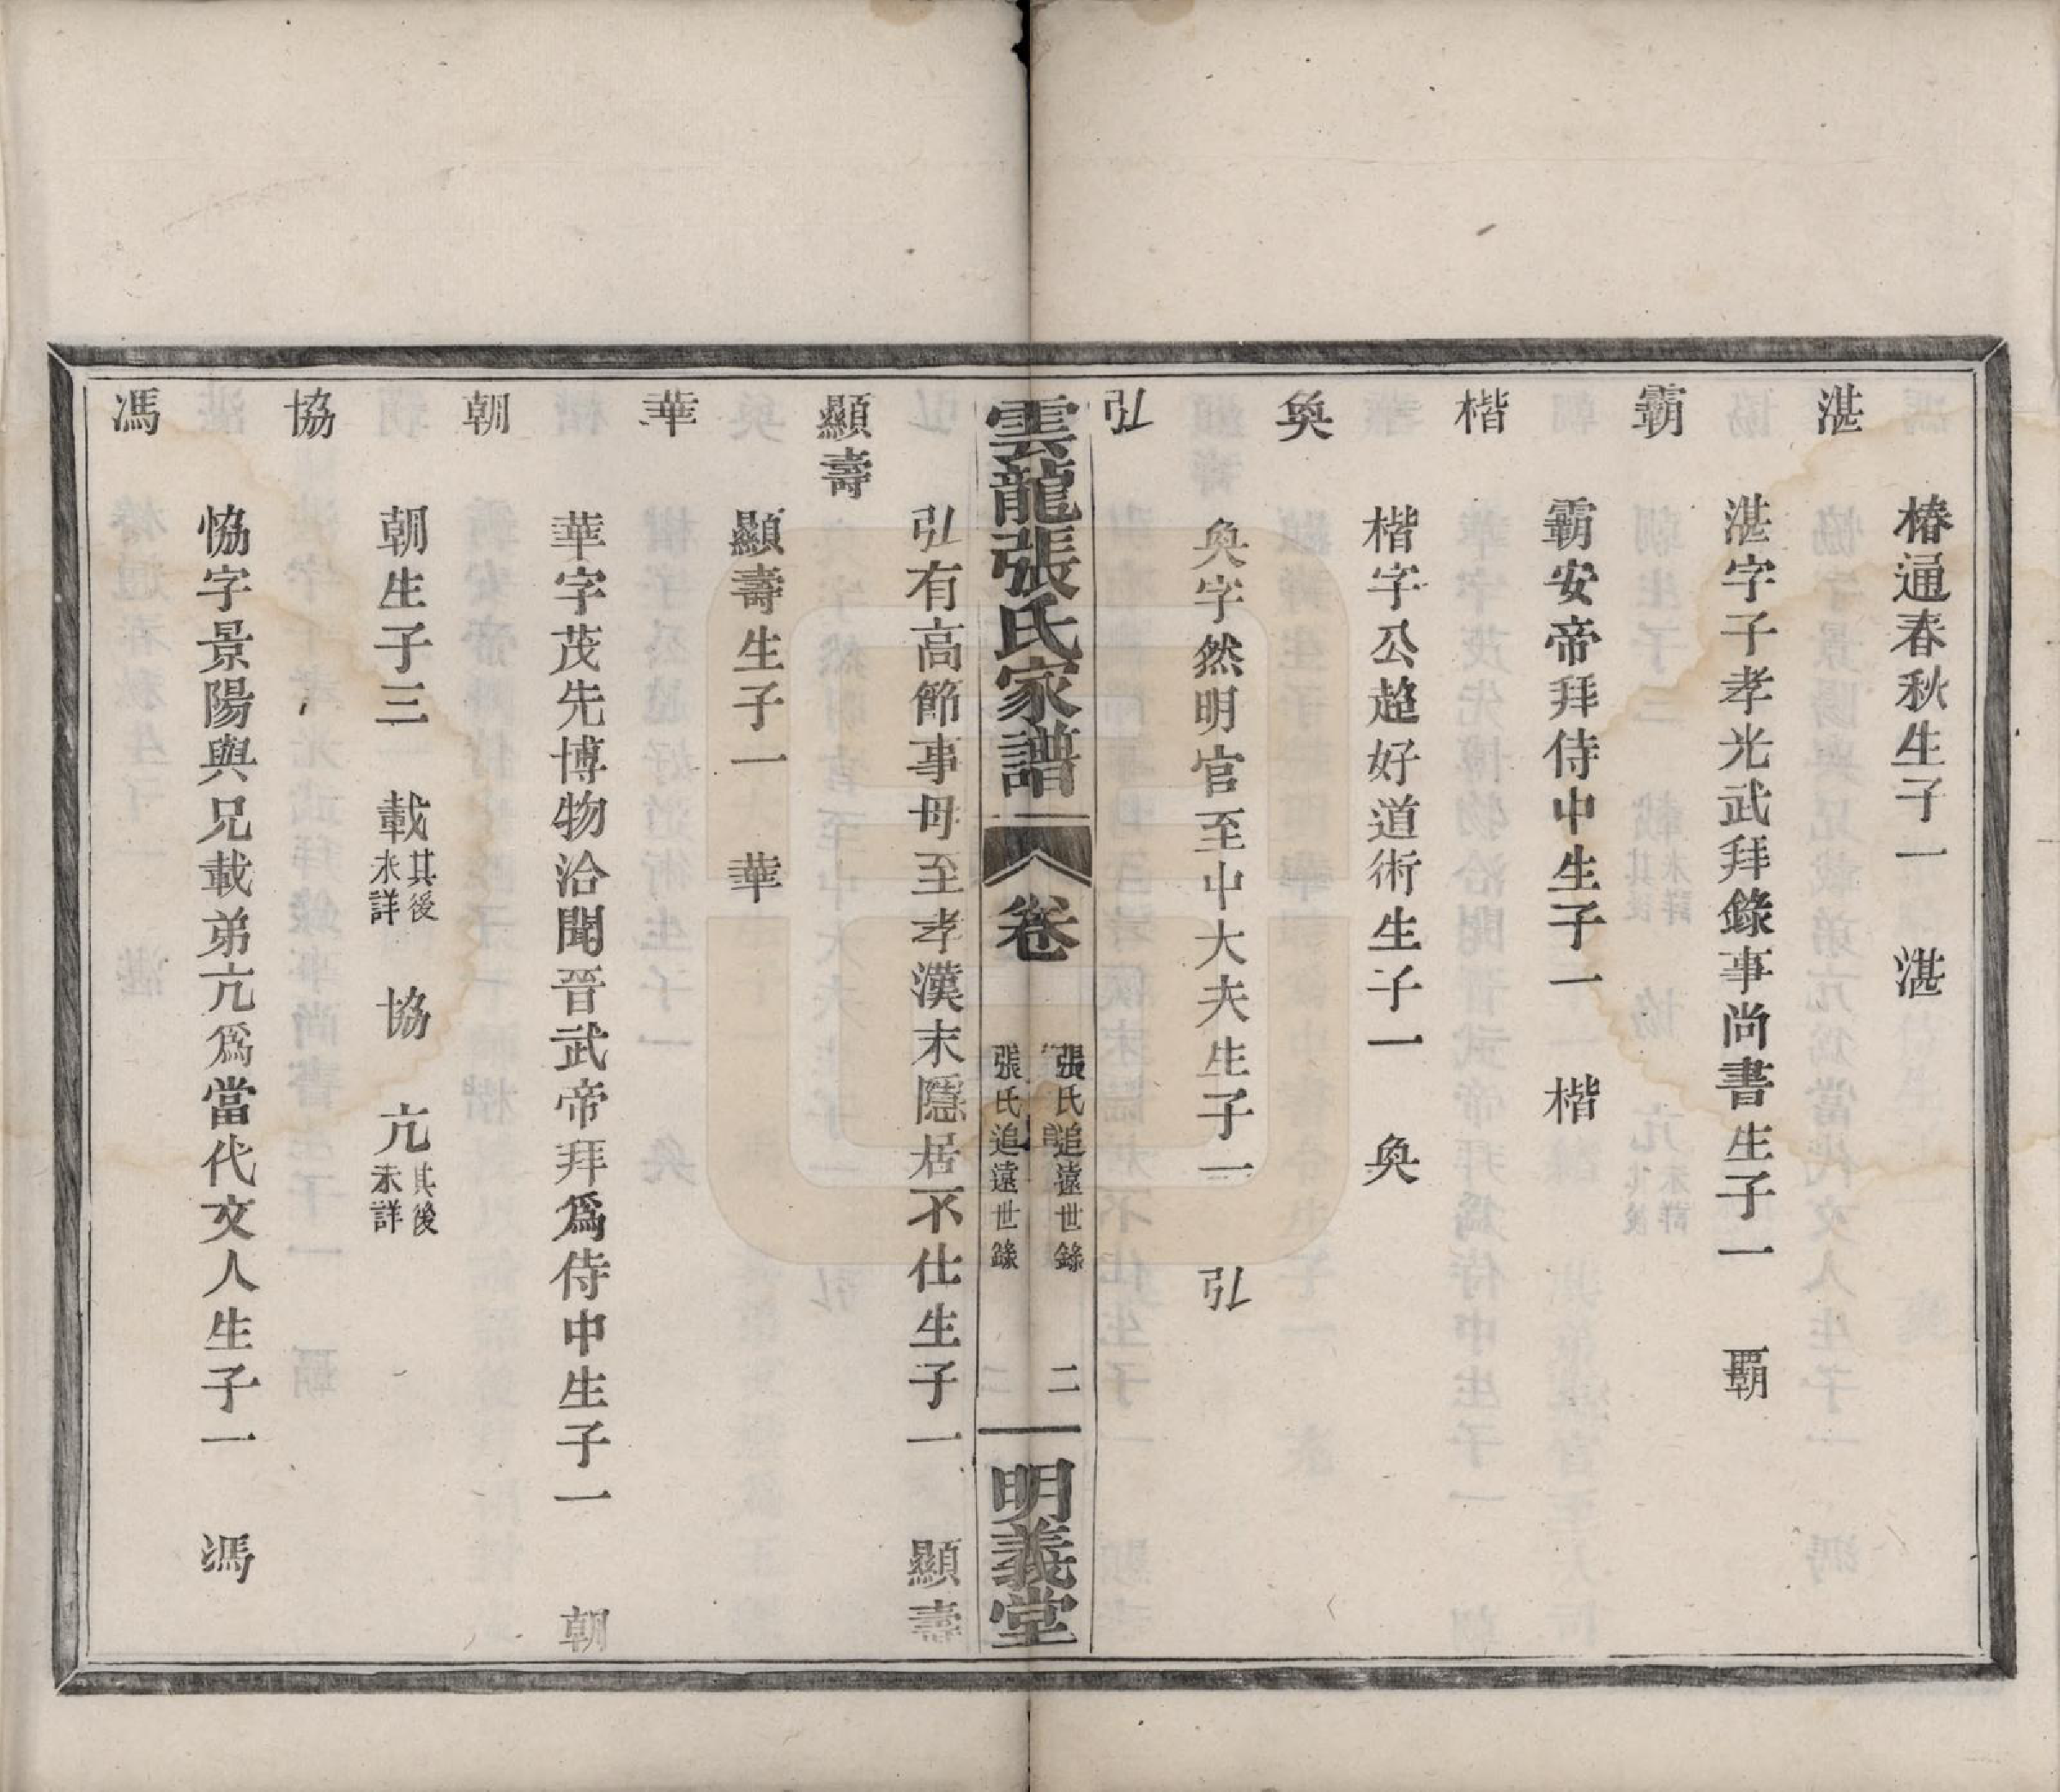 椿通春秋生子一　湛
湛
湛字子孝光武拜錄事尚書生子一　覇
霸
霸安帝拜侍中生子一　楷
楷
楷字公超好道術生子一　奐
奐
奐字然明官至中大夫生子一　弘
弘
雲龍張氏家譜　卷　張氏追遠世錄　二　明義堂
張氏追遠世錄
弘有高節事母至孝漢末隱居不仕生子一　顯壽
顯壽
顯壽生子一　華
華
華字茂先博物洽聞晉武帝拜爲侍中生子一　朝
朝
朝生子三　載其後未詳　協　亢其後未詳
協
恊字景陽與兄載弟亢爲當代文人生子一　馮
馮